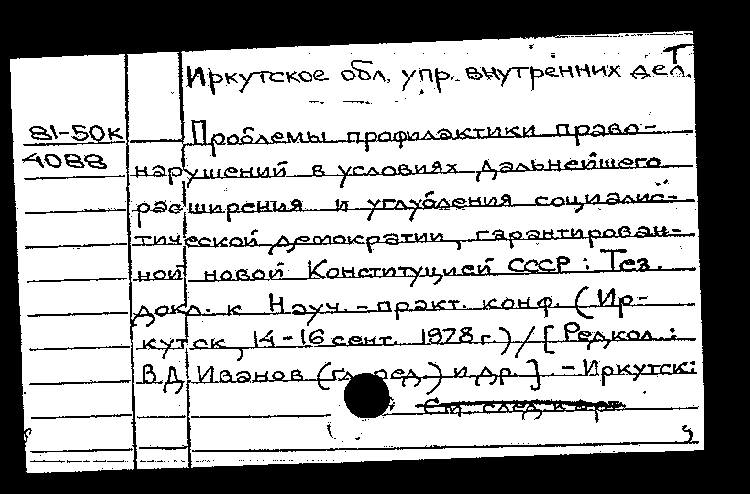 Т
Иркутское обл. упр. внутренних дел.
81-50к Проблемы профилактики право-
4088 нарушений в условиях дальнейшего
расширения и углубления социалис-
тической демократии, гарантирован-
ной новой Конституцией СССР: Тез.
докл. к Науч.-практ. конф. (Ир-
кутск, 14-16 сент. 1978 г.) / [Редкол.:
В.Д. Иванов (гл. ред.) и др.]. - Иркутск:
См. след. карт.